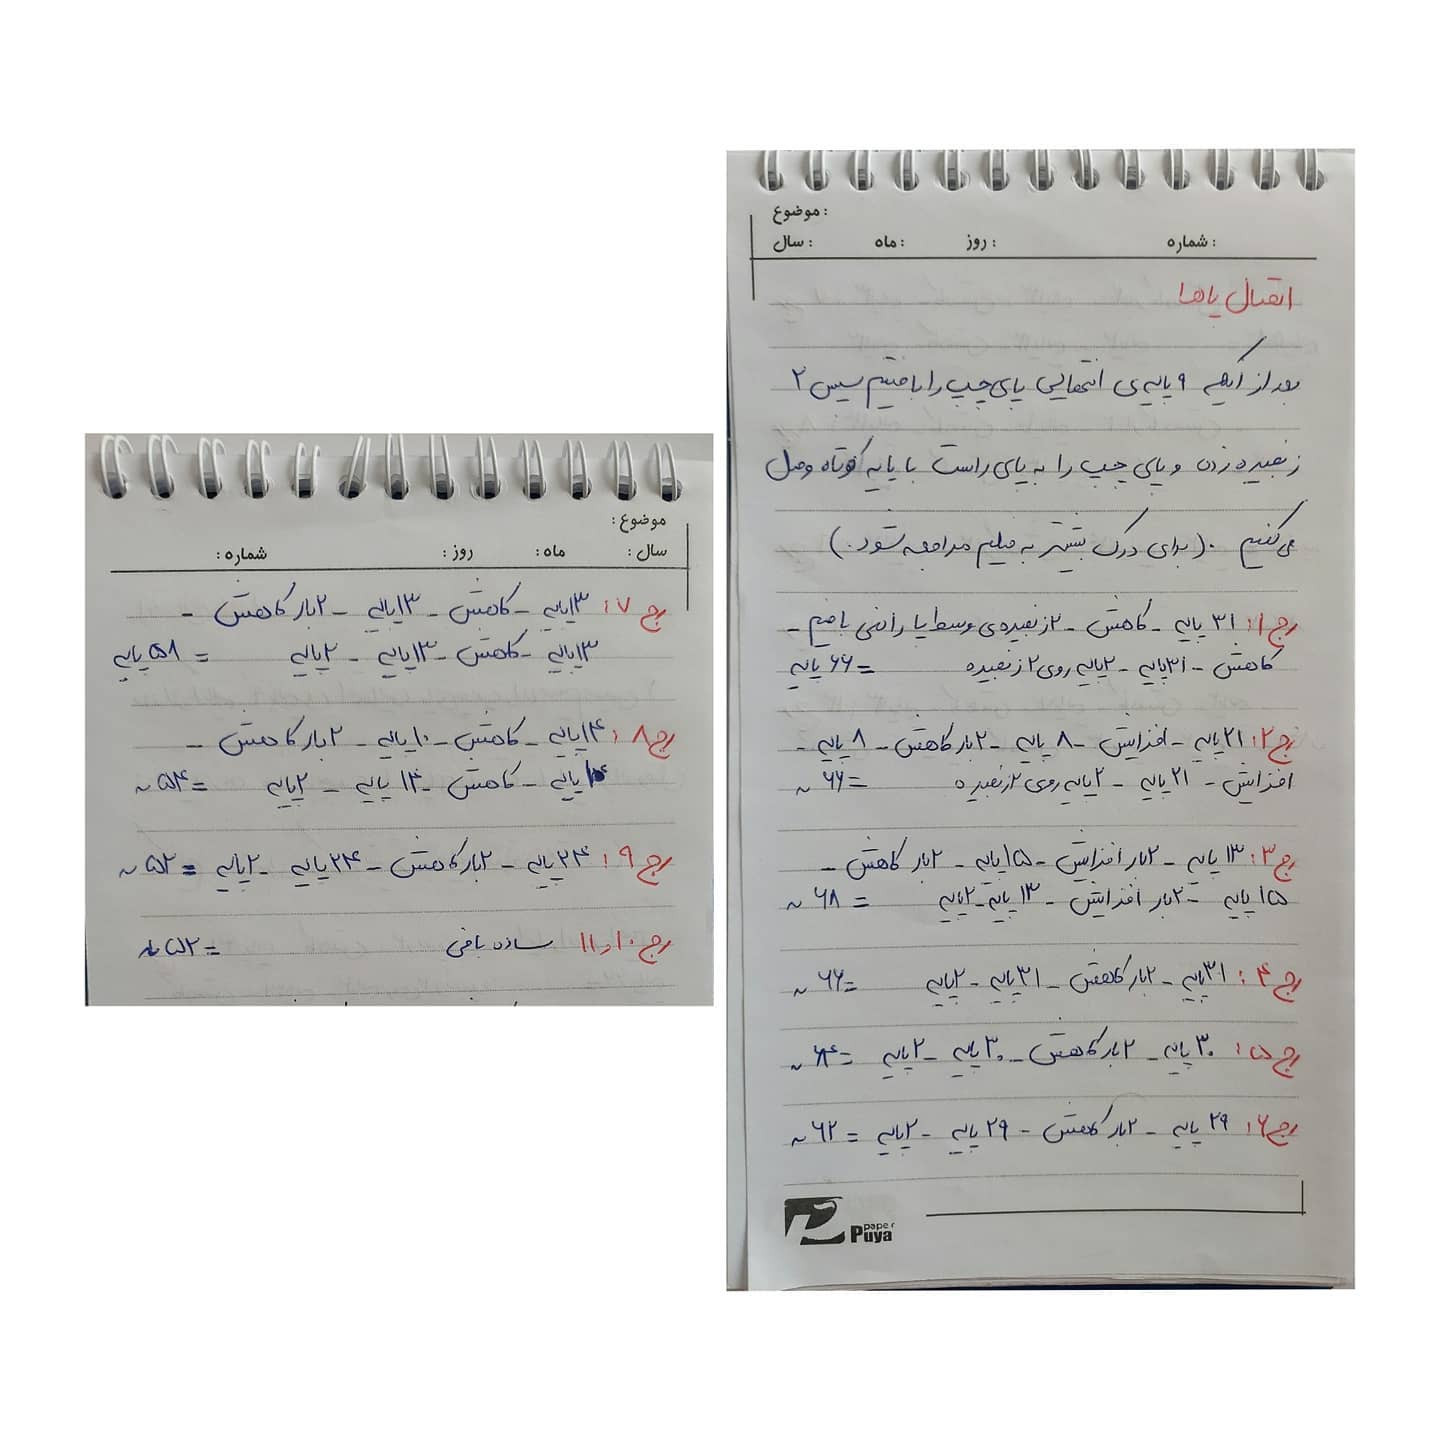 موضوع:
شماره: روز: ماه: سال:
اتصال پاها
بعد از اینکه ۹ پایه‌ی انتهایی پای چپ را بافتیم سپس ۲
زنجیره زدن و پای چپ را به پای راست با پایه کوتاه وصل
می‌کنیم. (برای درک بیشتر به فیلم مراجعه شود.)
رج ۱: ۳۱ پایه - کاهش - ۲ زنجیره‌ی وسط پا را می بافیم -
کاهش - ۳۱ پایه - ۲ پایه روی ۲ زنجیره = ۶۶ پایه
رج ۲: ۲۱ پایه - افزایش - ۸ پایه - ۲ بار کاهش - ۸ پایه -
افزایش - ۲۱ پایه - ۲ پایه روی ۲ زنجیره = ۶۶ ~
رج ۳: ۱۳ پایه - ۲ بار افزایش - ۱۵ پایه - ۲ بار کاهش -
۱۵ پایه - ۲ بار افزایش - ۱۳ پایه - ۲ پایه = ۶۸ ~
رج ۴: ۳۱ پایه - ۲ بار کاهش - ۳۱ پایه - ۲ پایه = ۶۶ ~
رج ۵: ۳۰ پایه - ۲ بار کاهش - ۳۰ پایه - ۲ پایه = ۶۴ ~
رج ۶: ۲۹ پایه - ۲ بار کاهش - ۲۹ پایه - ۲ پایه = ۶۲ ~
paper
Puya
موضوع:
سال: ماه: روز: شماره:
رج ۷: ۱۳ پایه - کاهش - ۱۳ پایه - ۲ بار کاهش -
۱۳ پایه - کاهش - ۱۳ پایه - ۲ پایه = ۵۸ پایه
رج ۸: ۱۴ پایه - کاهش - ۱۰ پایه - ۲ بار کاهش -
پایه - کاهش - ۱۴ پایه - ۲ پایه = ۵۴ ~
رج ۹: ۲۴ پایه - ۲ بار کاهش - ۲۴ پایه - ۲ پایه = ۵۲ ~
رج ۱۰ و ۱۱ ساده بافی = ۵۲ ~